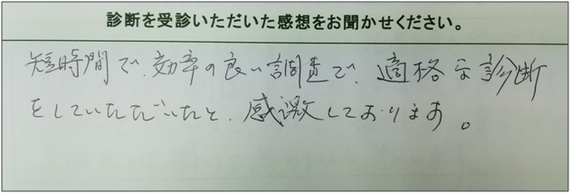 診断を受診いただいた感想をお聞かせください。
短時間で、効率の良い調査で、適格な診断
をしていただいたと、感激しております。